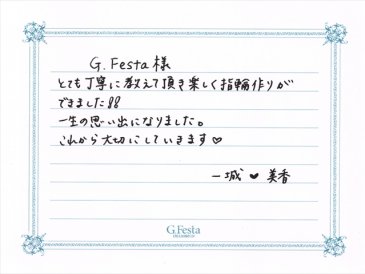 G. Festa 様
とても丁寧に教えて頂き楽しく指輪作りが
できました!!
一生の思い出になりました。
これから大切にしていきます♡
一城 ♥ 美香
G.Festa